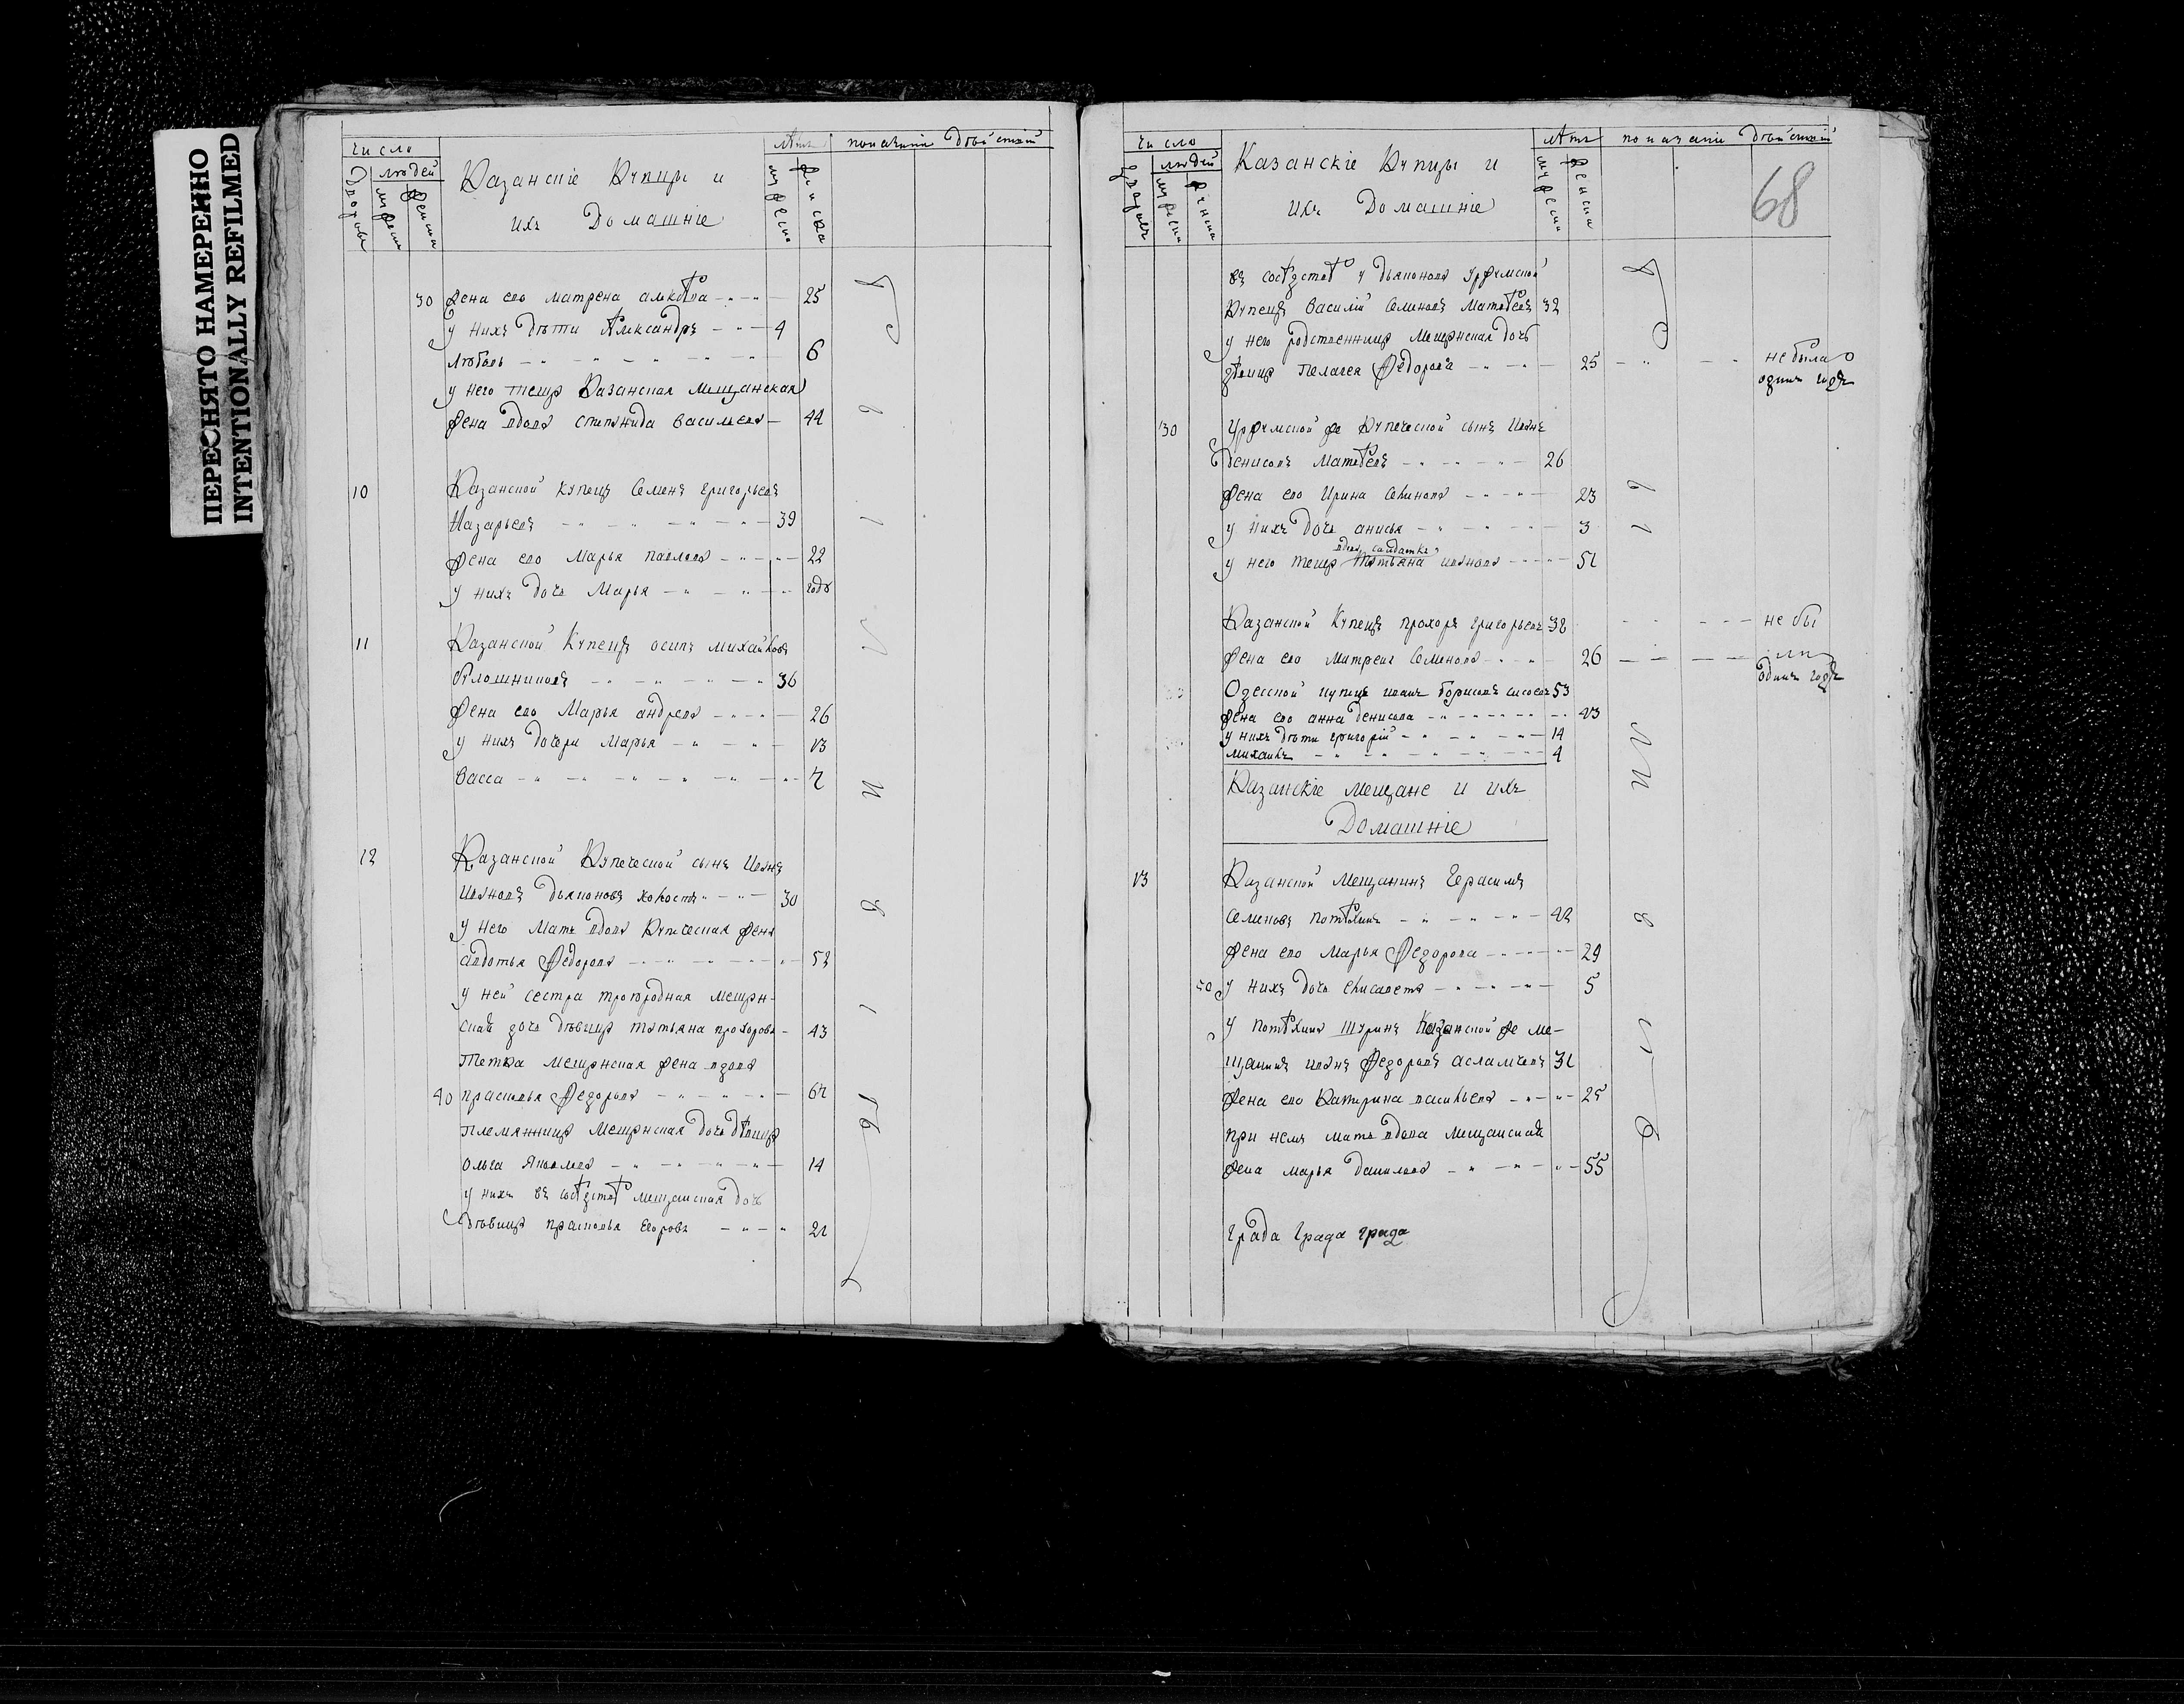 ПЕРЕСНЯТО НАМЕРЕННО
INTENTIONALLY REFILMED
число
людей
Казанскіе Купцы и
ихъ Домашніе
лѣтъ
показаніе дѣйствій
30 Жена его Матрена 25
у нихъ дѣти Александръ 4
Любовь 6
у него теща Казанская мещанская
жена вдова Васильева 44
10 Казанской купецъ Семенъ Григорьевъ
Назарьевъ 39
Жена его Марья Павлова 22
у нихъ дочь Марья годъ
11 Казанской Купецъ Осипъ Михайловъ
36
Жена его Марья Андреева 26
у нихъ дочери Марья 13
Васса 7
12 Казанской Купеческой сынъ Иванъ
Ивановъ Дьяконовъ холостъ 30
У него Мать вдова Купеческая жена
Авдотья Федорова 52
у ней сестра троюродная мещан-
ская дочь дѣвица Татьяна Прохорова 43
Тетка мещанская жена вдова
40 Прасковья Федорова 67
Племянница Мещанская дочь дѣвица
Ольга Яковлева 14
у нихъ въ сосѣдствѣ мещанская дочь
дѣвица Прасковья Егорова 21
число
людей
Казанскіе Купцы и
ихъ Домашніе
лѣтъ
показаніе дѣйствій
68
въ сосѣдствѣ у Дьяконова Уржумской
Купецъ Василій Семеновъ Матвѣевъ 32
у него родственница Мещанская дочь
дѣвица Пелагея Федорова 25 не была
одинъ годъ
30 Уржумской же Купеческой сынъ Иванъ
Денисовъ Матвѣевъ 26
Жена его Ирина Семенова 23
у нихъ дочь Анисья 3
вдова солдатка
у него теща Татьяна Иванова 51
Казанской Купецъ Прохоръ Григорьевъ 38 не бы
Жена его Матрена Семенова 26 ли
одинъ годъ
Одесской купецъ Иванъ Борисовъ 53
жена его Анна Денисова 43
у нихъ дѣти Григорій 14
Михаилъ 4
Казанскіе мещане и ихъ
Домашніе
13 Казанской Мещанинъ Герасимъ
Семеновъ Потѣхинъ 42
Жена его Марья Федорова 29
50 у нихъ дочь Елисавета 5
у Потѣхина Шуринъ Казанской же ме-
щанинъ Иванъ Федоровъ 31
Жена его Катерина Васильева 25
при немъ мать вдова мещанская
жена Марья Данилова 55
града града града